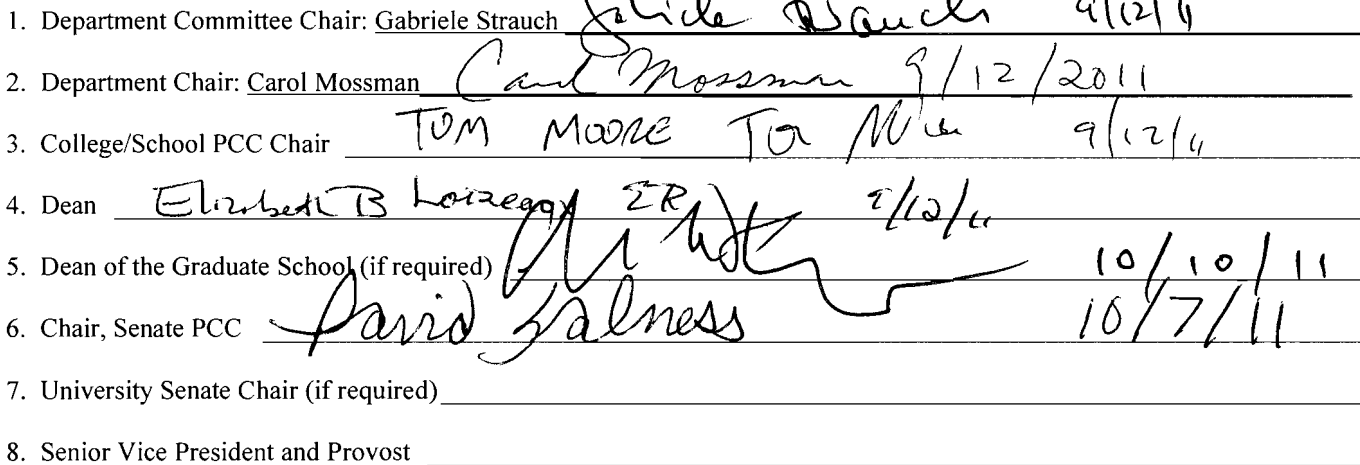 1. Department Committee Chair: Gabriele Strauch Gabriele Strauch 9/12/11
2. Department Chair: Carol Mossman Carol Mossman 9/12/2011
3. College/School PCC Chair TOM MOORE 9/12/11
4. Dean Elizabeth B Loizeaux 9/12/11
5. Dean of the Graduate School (if required) 10/10/11
6. Chair, Senate PCC David Salness 10/7/11
7. University Senate Chair (if required)
8. Senior Vice President and Provost